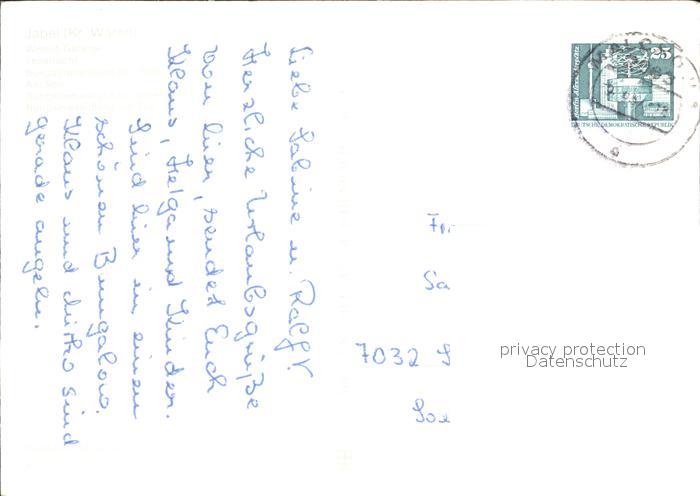 Jabel (Kr. Waren)
Liebe Sabine u. Ralf!
Herzliche Urlaubsgrüße
von hier, sendet Euch
Klaus, Helga und Kinder.
Sind hier in einem
schönen Bungalow.
Klaus und sind
gerade angeln.
25
DEUTSCHE DEMOKRATISCHE REPUBLIK
Fr.
Sa
7032 L
privacy protection
Datenschutz